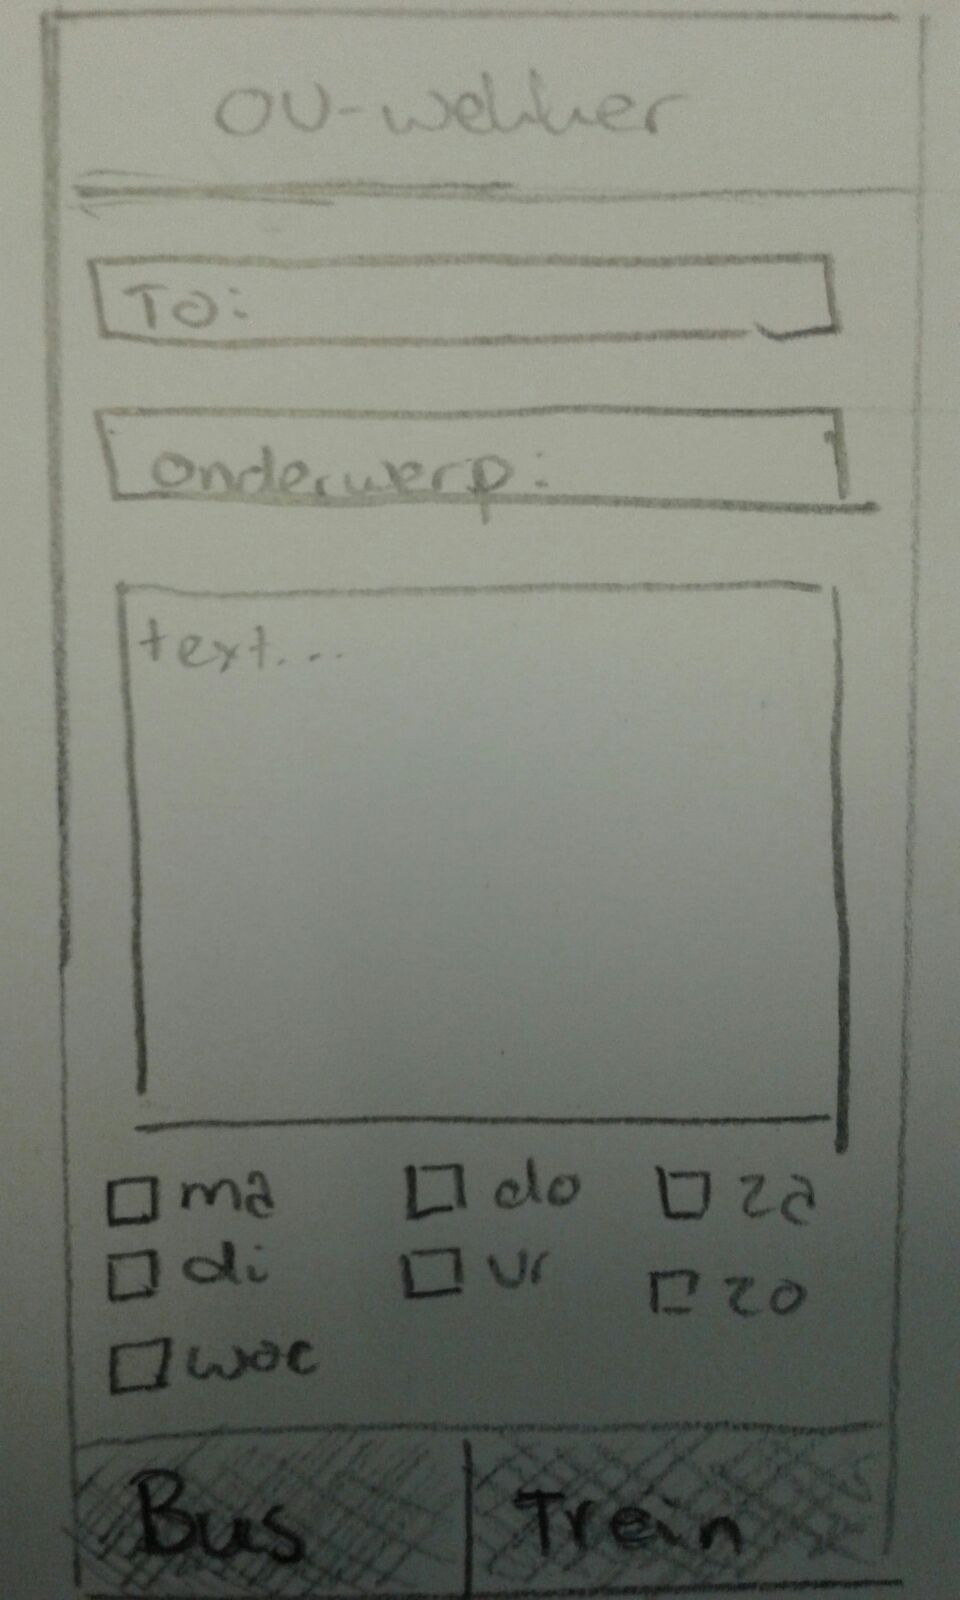 OV-wekker
To:
onderwerp:
text...
ma do za
di vr zo
woe
Bus Trein